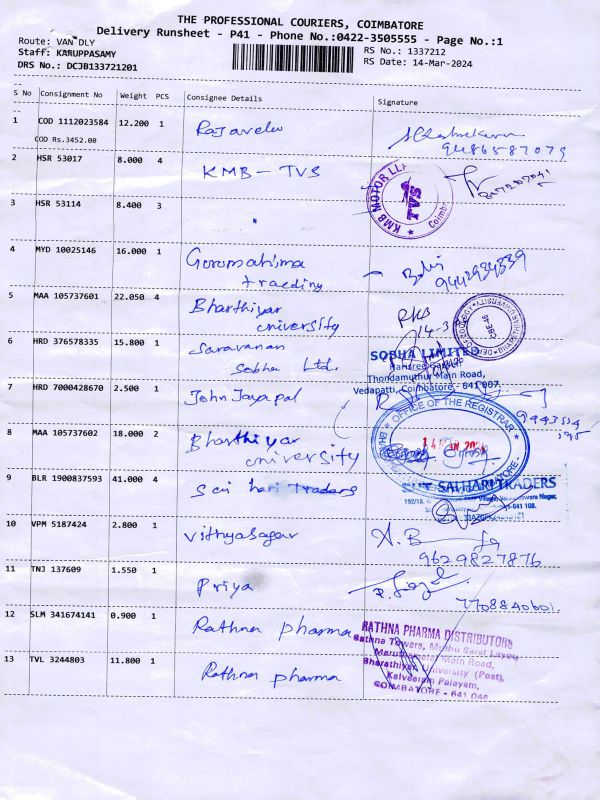 THE PROFESSIONAL COURIERS, COIMBATORE
Delivery Runsheet - P41 - Phone No.:0422-3505555 - Page No.:1
Route: VAN DLY
RS No.: 1337212
Staff: KARUPPASAMY
RS Date: 14-Mar-2024
DRS No.: DCJB133721201
S No Consignment No Weight PCS Consignee Details Signature
1 COD 1112023584 12.200 1 Rajavelu
COD Rs.3452.00
9486587079
2 HSR 53017 8.000 4 KMB - TVS
KMB MOTOR LLP
TVS
3 HSR 53114 8.400 3
4 MYD 10025146 16.000 1 Gurumahima
traeding
9442934339
5 MAA 105737601 22.050 4 Bharthiyar
university
RKB
6 HRD 376578335 15.800 1 Saravanan
Sobha Ltd.
SOBHA LIMITED
Thondamuthur Main Road,
Vedapatti, Coimbatore - 641 007.
7 HRD 7000428670 2.500 1 John Jayapal
8 MAA 105737602 18.000 2 Bharthiyar
university
OFFICE OF THE REGISTRAR
9 BLR 1900837593 41.000 4 Sai hari Traders
SAI HARI TRADERS
10 VPM 5187424 2.800 1 Vithyasagar
9629827876
11 TNJ 137609 1.550 1 Priya
7708840601.
12 SLM 341674141 0.900 1 Rathna pharma
RATHNA PHARMA DISTRIBUTORS
Rathna Towers, Muthu Saral Layout
Maruthamalai Main Road,
Bharathiyar University (Post),
Kalveeram Palayam,
COIMBATORE - 641 046
13 TVL 3244803 11.800 1 Rathna pharma